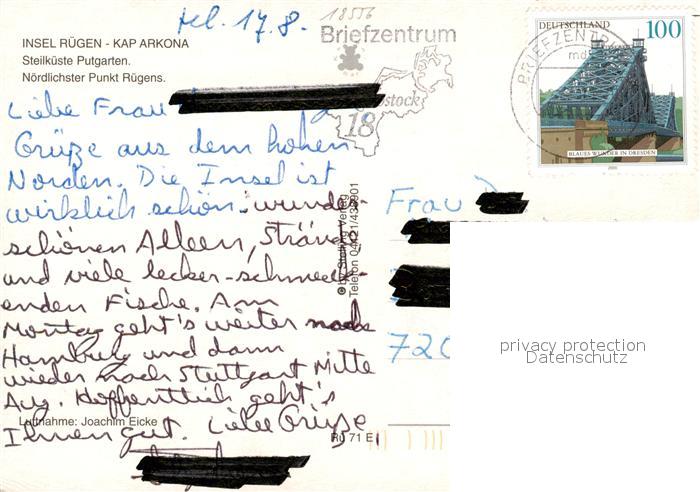 tel. 17.8.
18556
Briefzentrum
18
DEUTSCHLAND 100
BRIEFZENTR
BLAUES WUNDER IN DRESDEN
INSEL RÜGEN - KAP ARKONA
Steilküste Putgarten.
Nördlichster Punkt Rügens.
Liebe Frau
Grüße aus dem hohen
Norden. Die Insel ist
wirklich schön: wunder-
schönen Alleen, Strände
und viele lecker-schmeck-
enden Fische. Am
Montag geht's weiter nach
Hamburg und dann
wieder nach Stuttgart Mitte
Aug. Hoffentlich geht's
Ihnen gut. Liebe Grüße
Luftnahme: Joachim Eicke
Rü 71 E
Verlag
Telefon
Frau
720
privacy protection
Datenschutz